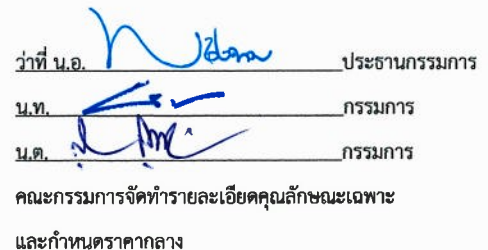 ว่าที่ น.อ. ประธานกรรมการ
น.ท. กรรมการ
น.ต. กรรมการ
คณะกรรมการจัดทำรายละเอียดคุณลักษณะเฉพาะ
และกำหนดราคากลาง